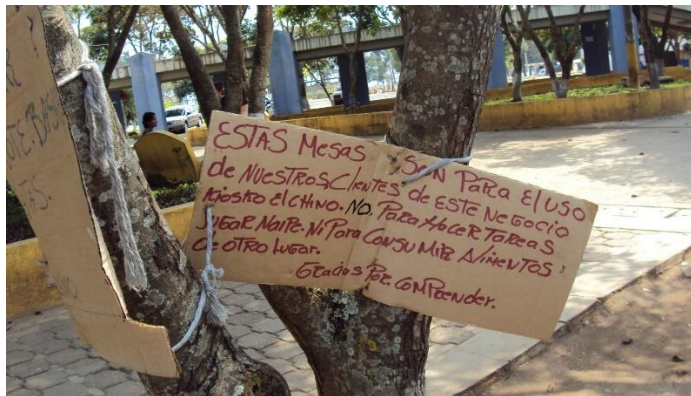 OTE.BAS
TAS.
ESTAS MESAS SON PARA El USO
de NUESTROS Clientes de ESTE NEGOCIO
Kiosko el CHINO. NO. PARA HACER TAREAS
JUGAR NAIPE. Ni PARA CONSUMIR AliMENTOS
de OTRO lugar.
Gracias POR COMPRENDER.